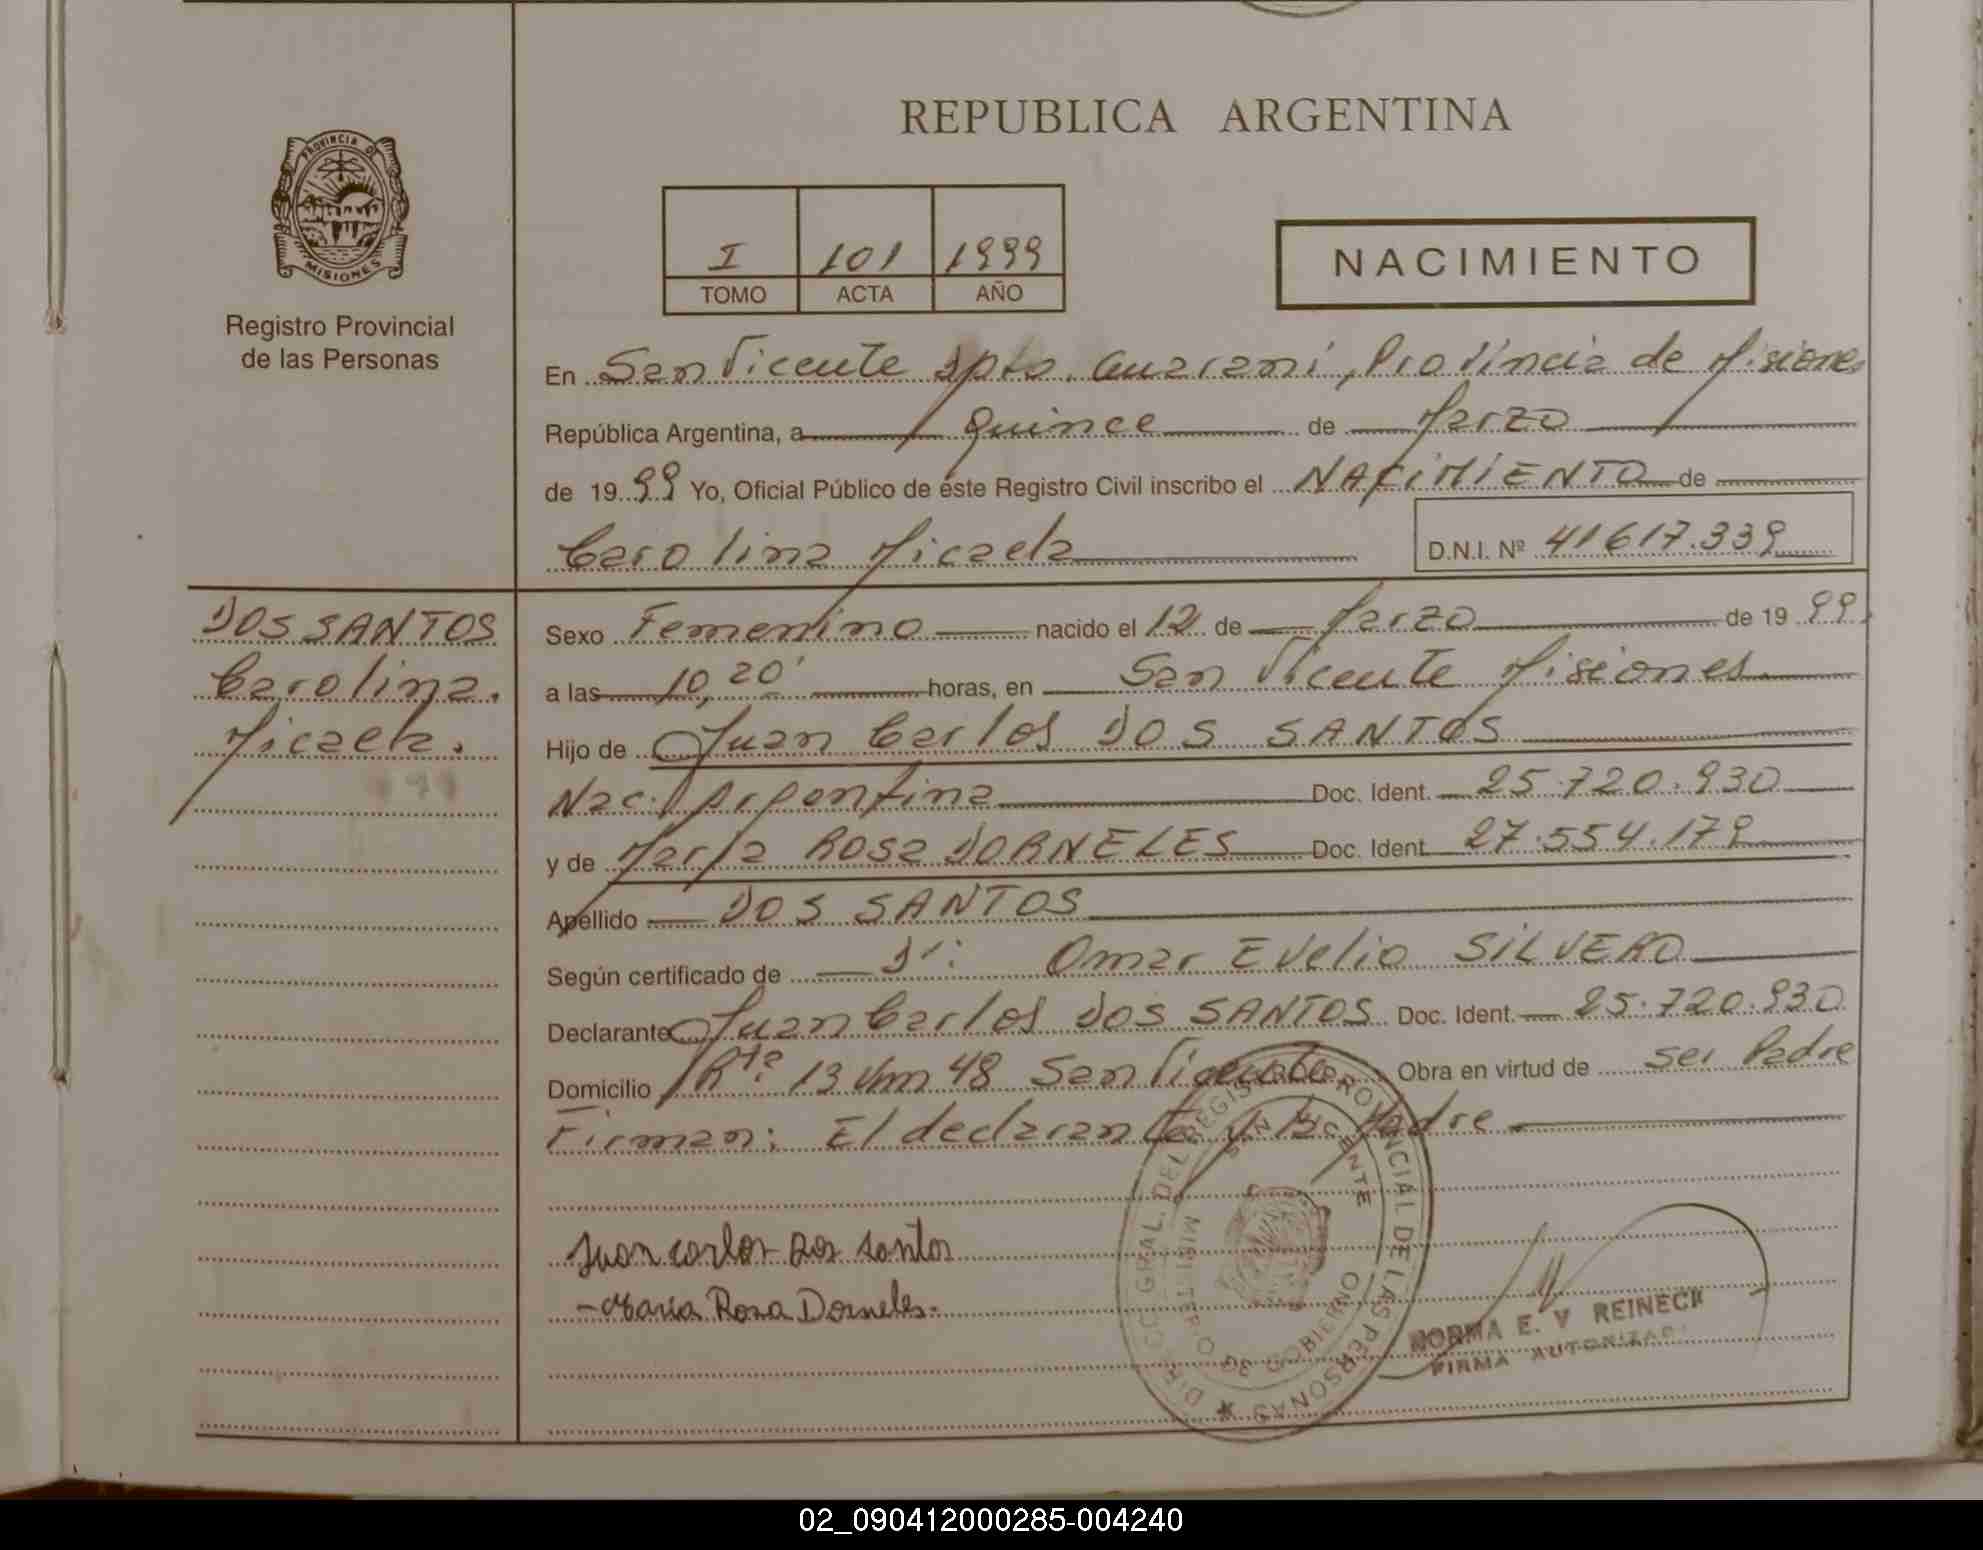 REPUBLICA ARGENTINA
PROVINCIA D
MISIONES
Registro Provincial
de las Personas
I 101 1999
TOMO ACTA AÑO
NACIMIENTO
En San Vicente Dpto. Guarani, Provincia de Misiones
República Argentina, a Quince de Marzo
de 1999 Yo, Oficial Público de éste Registro Civil inscribo el NACIMIENTO de
Carolina Micaela D.N.I. Nº 41617.339
DOS SANTOS
Carolina.
Micaela.
Sexo Femenino nacido el 12 de Marzo de 1999
a las 10,20' horas, en San Vicente Misiones
Hijo de Juan Carlos DOS SANTOS
Nac. Argentina Doc. Ident. 25.720.930
y de Maria Rosa DORNELES Doc. Ident. 27.554.179
Apellido DOS SANTOS
Según certificado de Dr: Omar Evelio SILVERO
Declarante Juan Carlos DOS SANTOS Doc. Ident. 25.720.930
Domicilio Rta. 13 Km 48 San Vicente Obra en virtud de ser Padre
Firman: El declarante y la Madre
Juan carlos Dos santos
-Maria Rosa Dorneles-
DIRECC GRAL. DEL REGISTRO PROVINCIAL DE LAS PERSONAS
SAN VICENTE
MINISTERIO DE GOBIERNO
NORMA E. V REINECK
FIRMA AUTORIZAD
02_090412000285-004240